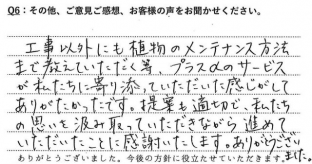 Q6：その他、ご意見ご感想、お客様の声をお聞かせください。
工事以外にも植物のメンテナンス方法
まで教えていただく等、プラスαのサービス
が私たちに寄り添っていただいた感じがして
ありがたかったです。提案も適切で、私たち
の思いを汲み取っていただきながら進めて
いただいたことに感謝いたします。ありがとうござい
ました。
ありがとうございました。今後の方針に役立たせていただきます。